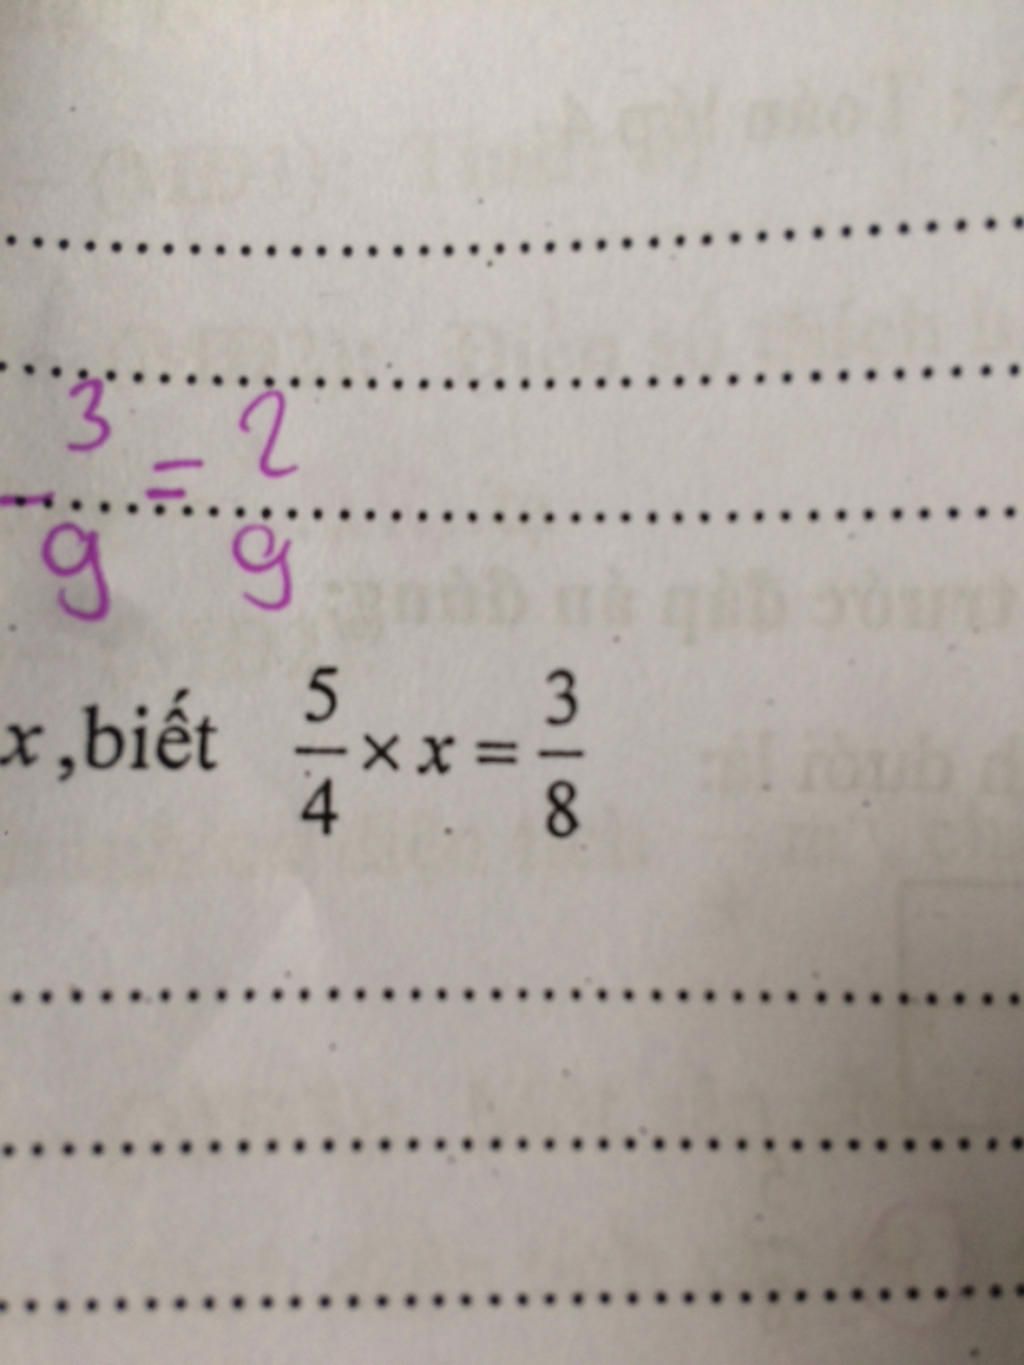 - 3/9 = 2/9
x ,biết 5/4 × x = 3/8